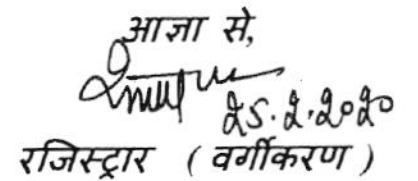 आज्ञा से,
25.2.2020
रजिस्ट्रार ( वर्गीकरण )